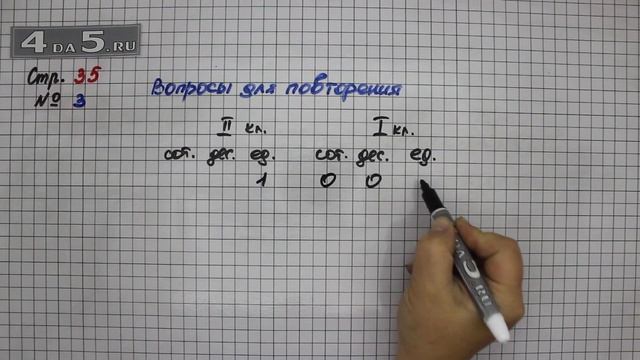 4DA5.RU
Стр. 35
№ 3
Вопросы для повторения
II кл. I кл.
сот. дес. ед. сот. дес. ед.
1 0 0
4DA5.RU